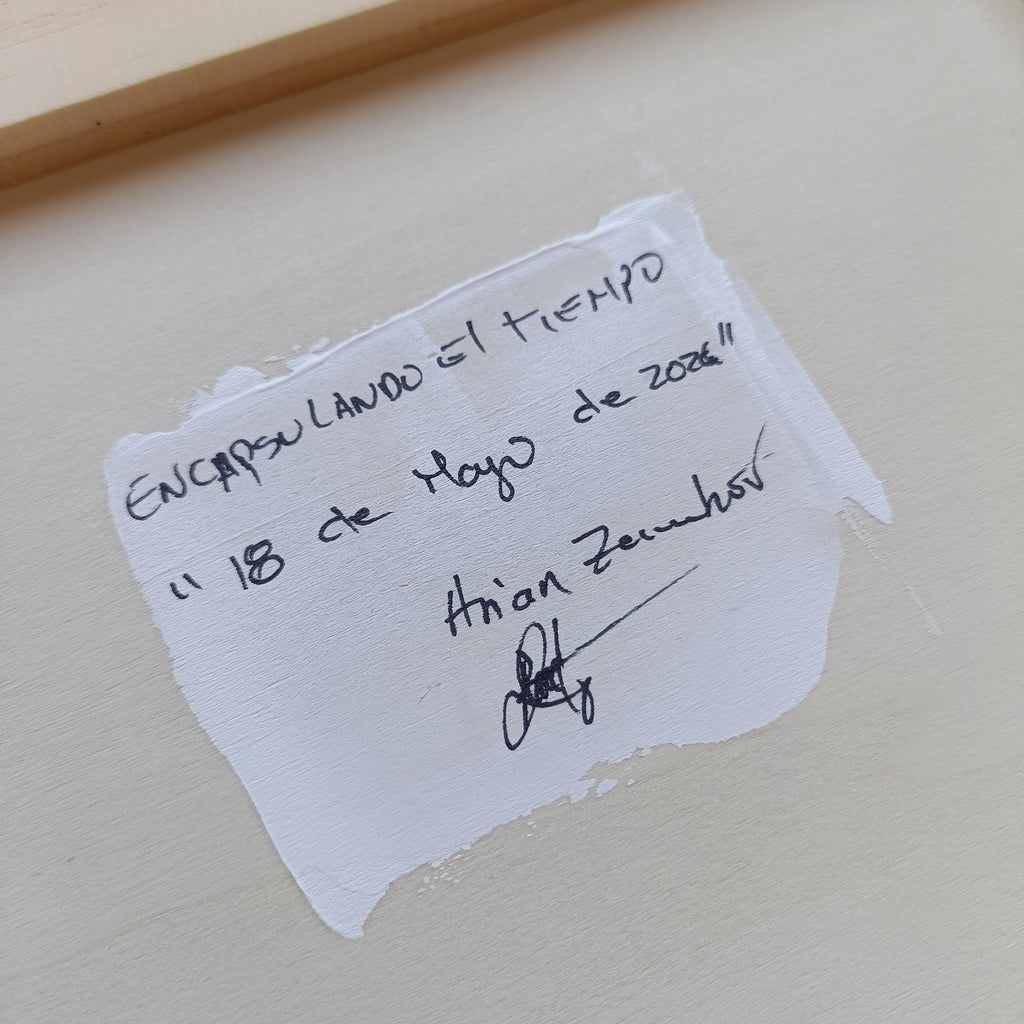 ENCAPSULANDO El TIEMPO
" 18 de Mayo de 2026"
Arian